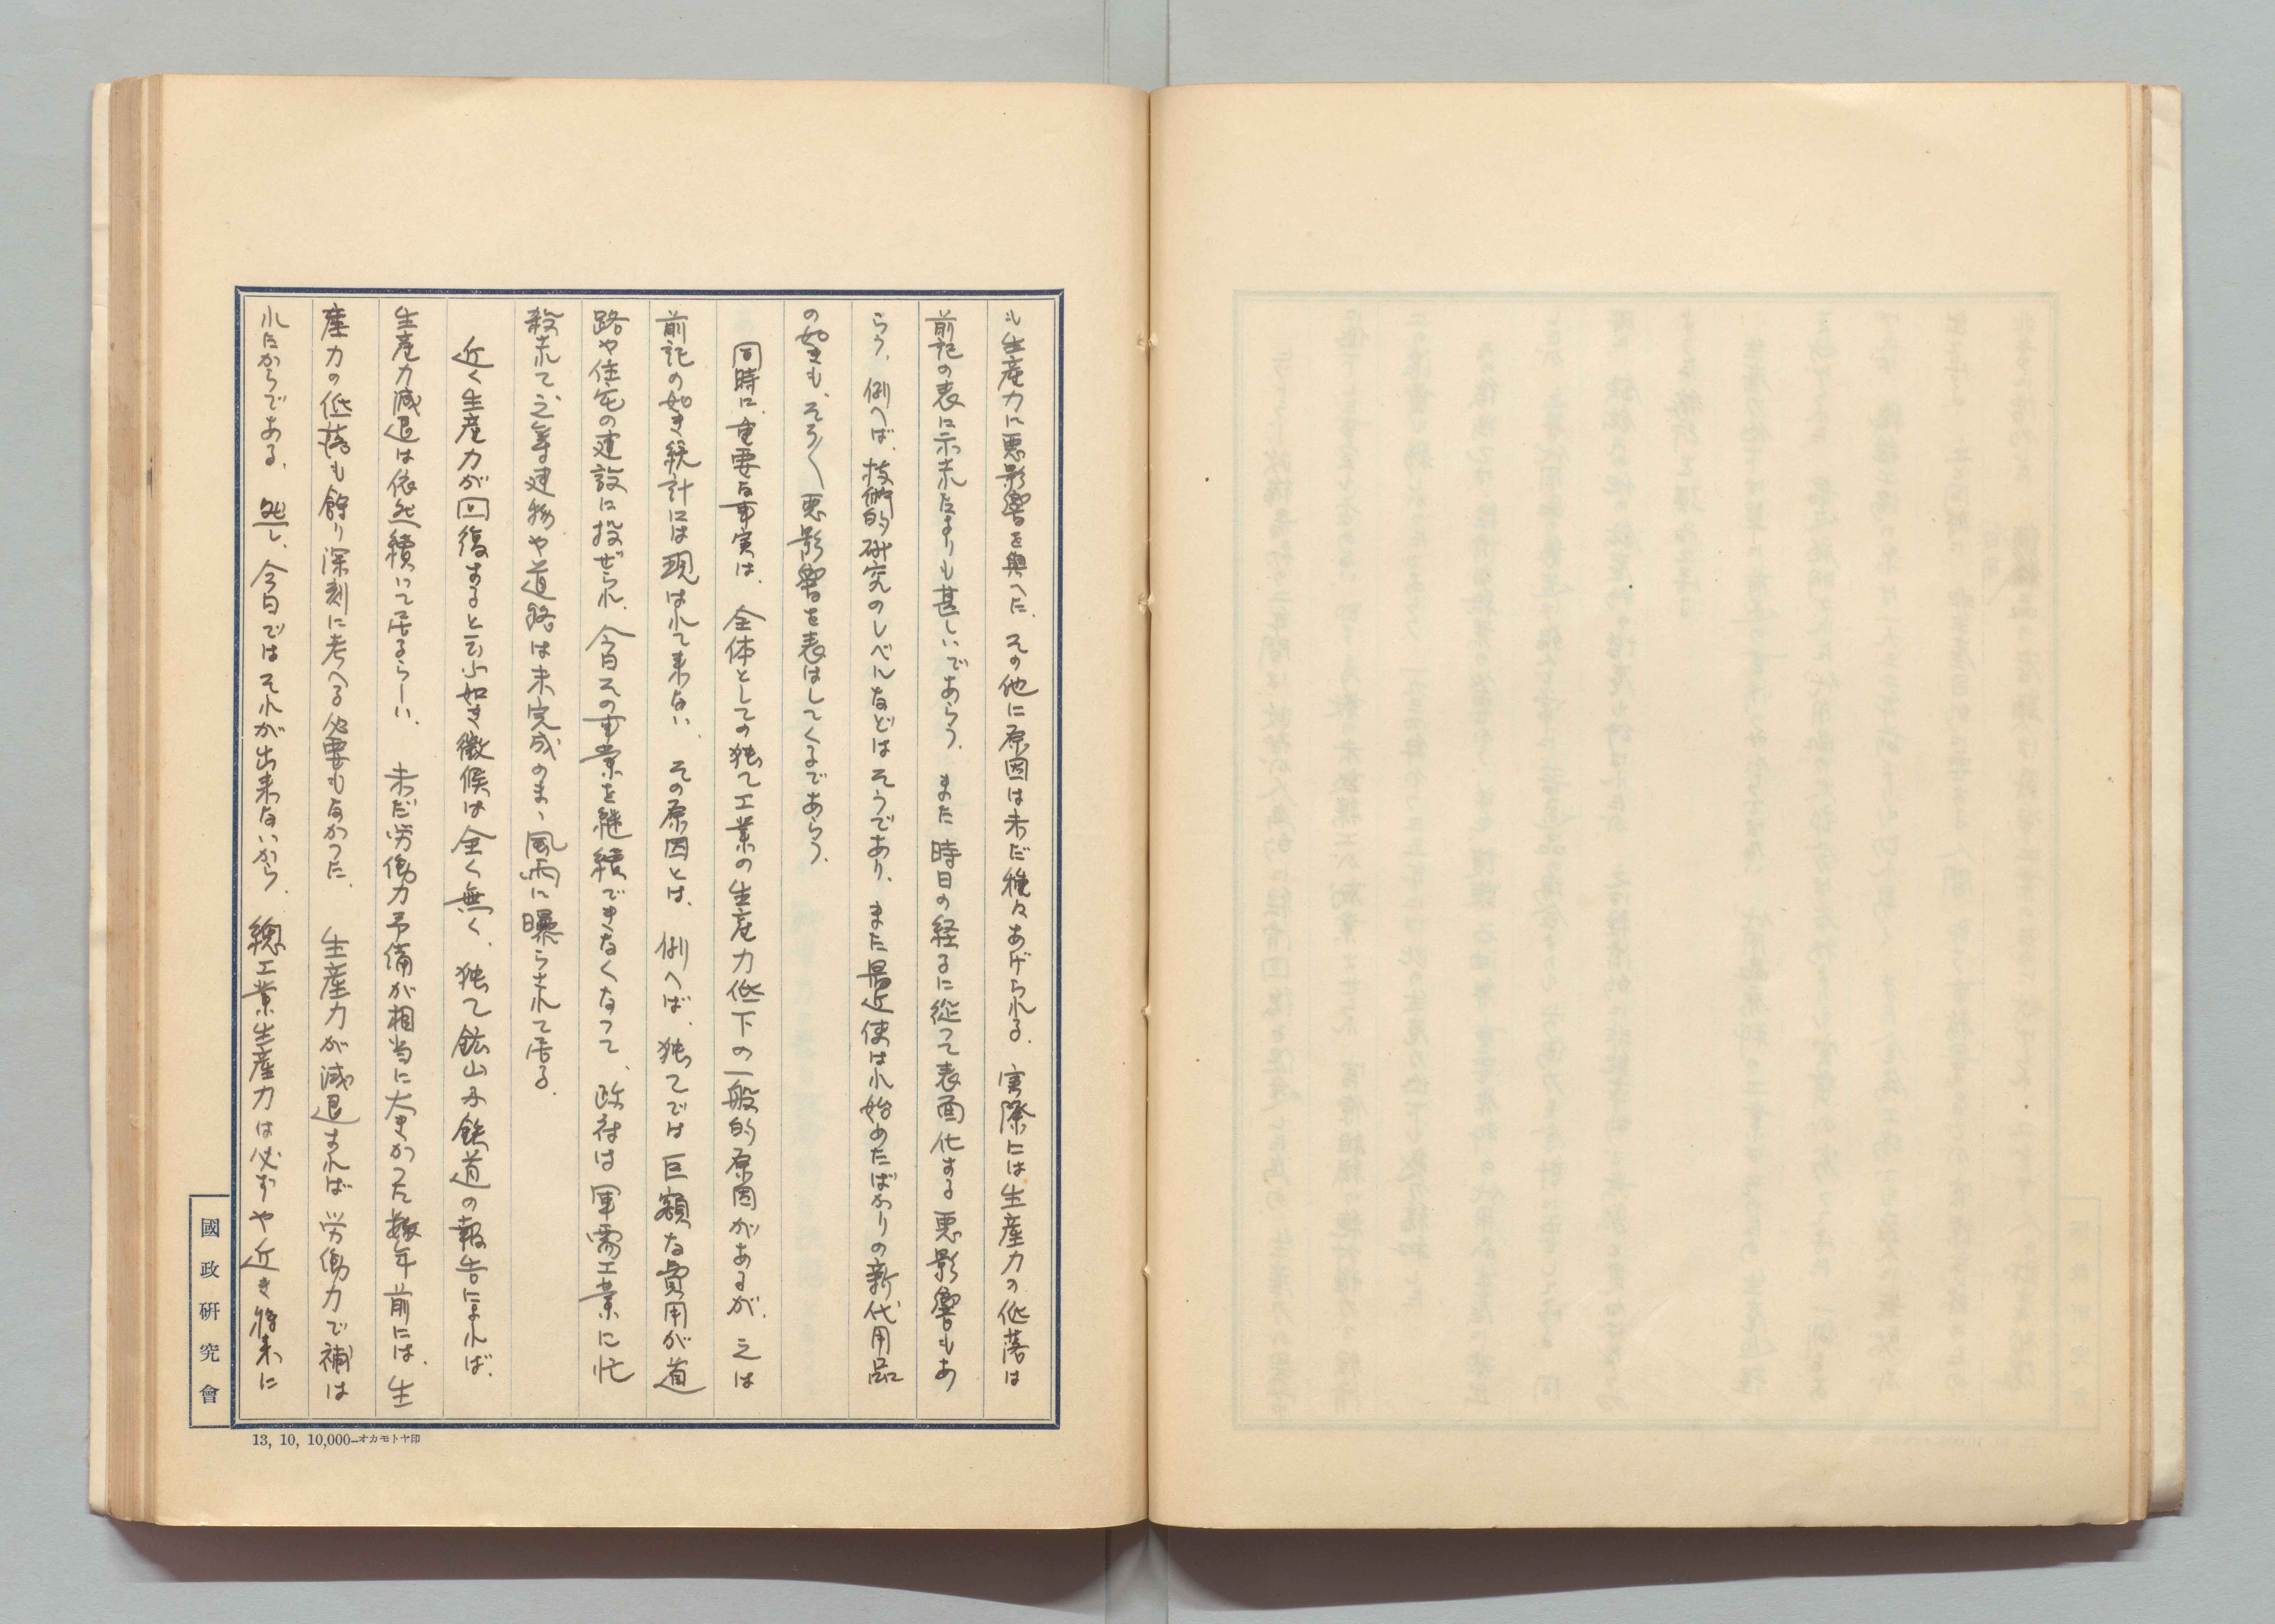 も生産力に悪影響を與へた、その他に原因は未だ種々あげられる、実際には生産力の低落は
前記の表に示されたよりも甚しいであらう、また時日の経るに從つて表面化する悪影響もあ
らう、例へば、技術的研究のレベルなどはそうであり、また最近使はれ始めたばかりの新代用品
の如きも、そろ〱悪影響を表はしてくるであらう、
同時に、重要な事実は、全体としての独乙工業の生産力低下の一般的原因があるが、之は
前記の如き統計には現はれて来ない、その原因とは、例へば、独乙では巨額な費用が道
路や住宅の建設に投ぜられ、今日その事業を継續できなくなって、政府は軍需工業に忙
殺されて、之等建物や道路は未完成のまゝ風雨に曝らされて居る、
近く生産力が回復すると云ふ如き徴候は全く無く、独乙鉱山及鉄道の報告によれば、
生産力減退は依然續いて居るらしい、未だ労働力予備が相当に大きかつた数年前には、生
産力の低落も餘り深刻に考へる必要もなかつた、生産力が減退すれば労働力で補は
れたからである、然し、今日ではそれが出来ないから、總工業生産力は必ずや近き将来に
國政研究會
13, 10, 10,000—オカモトヤ印